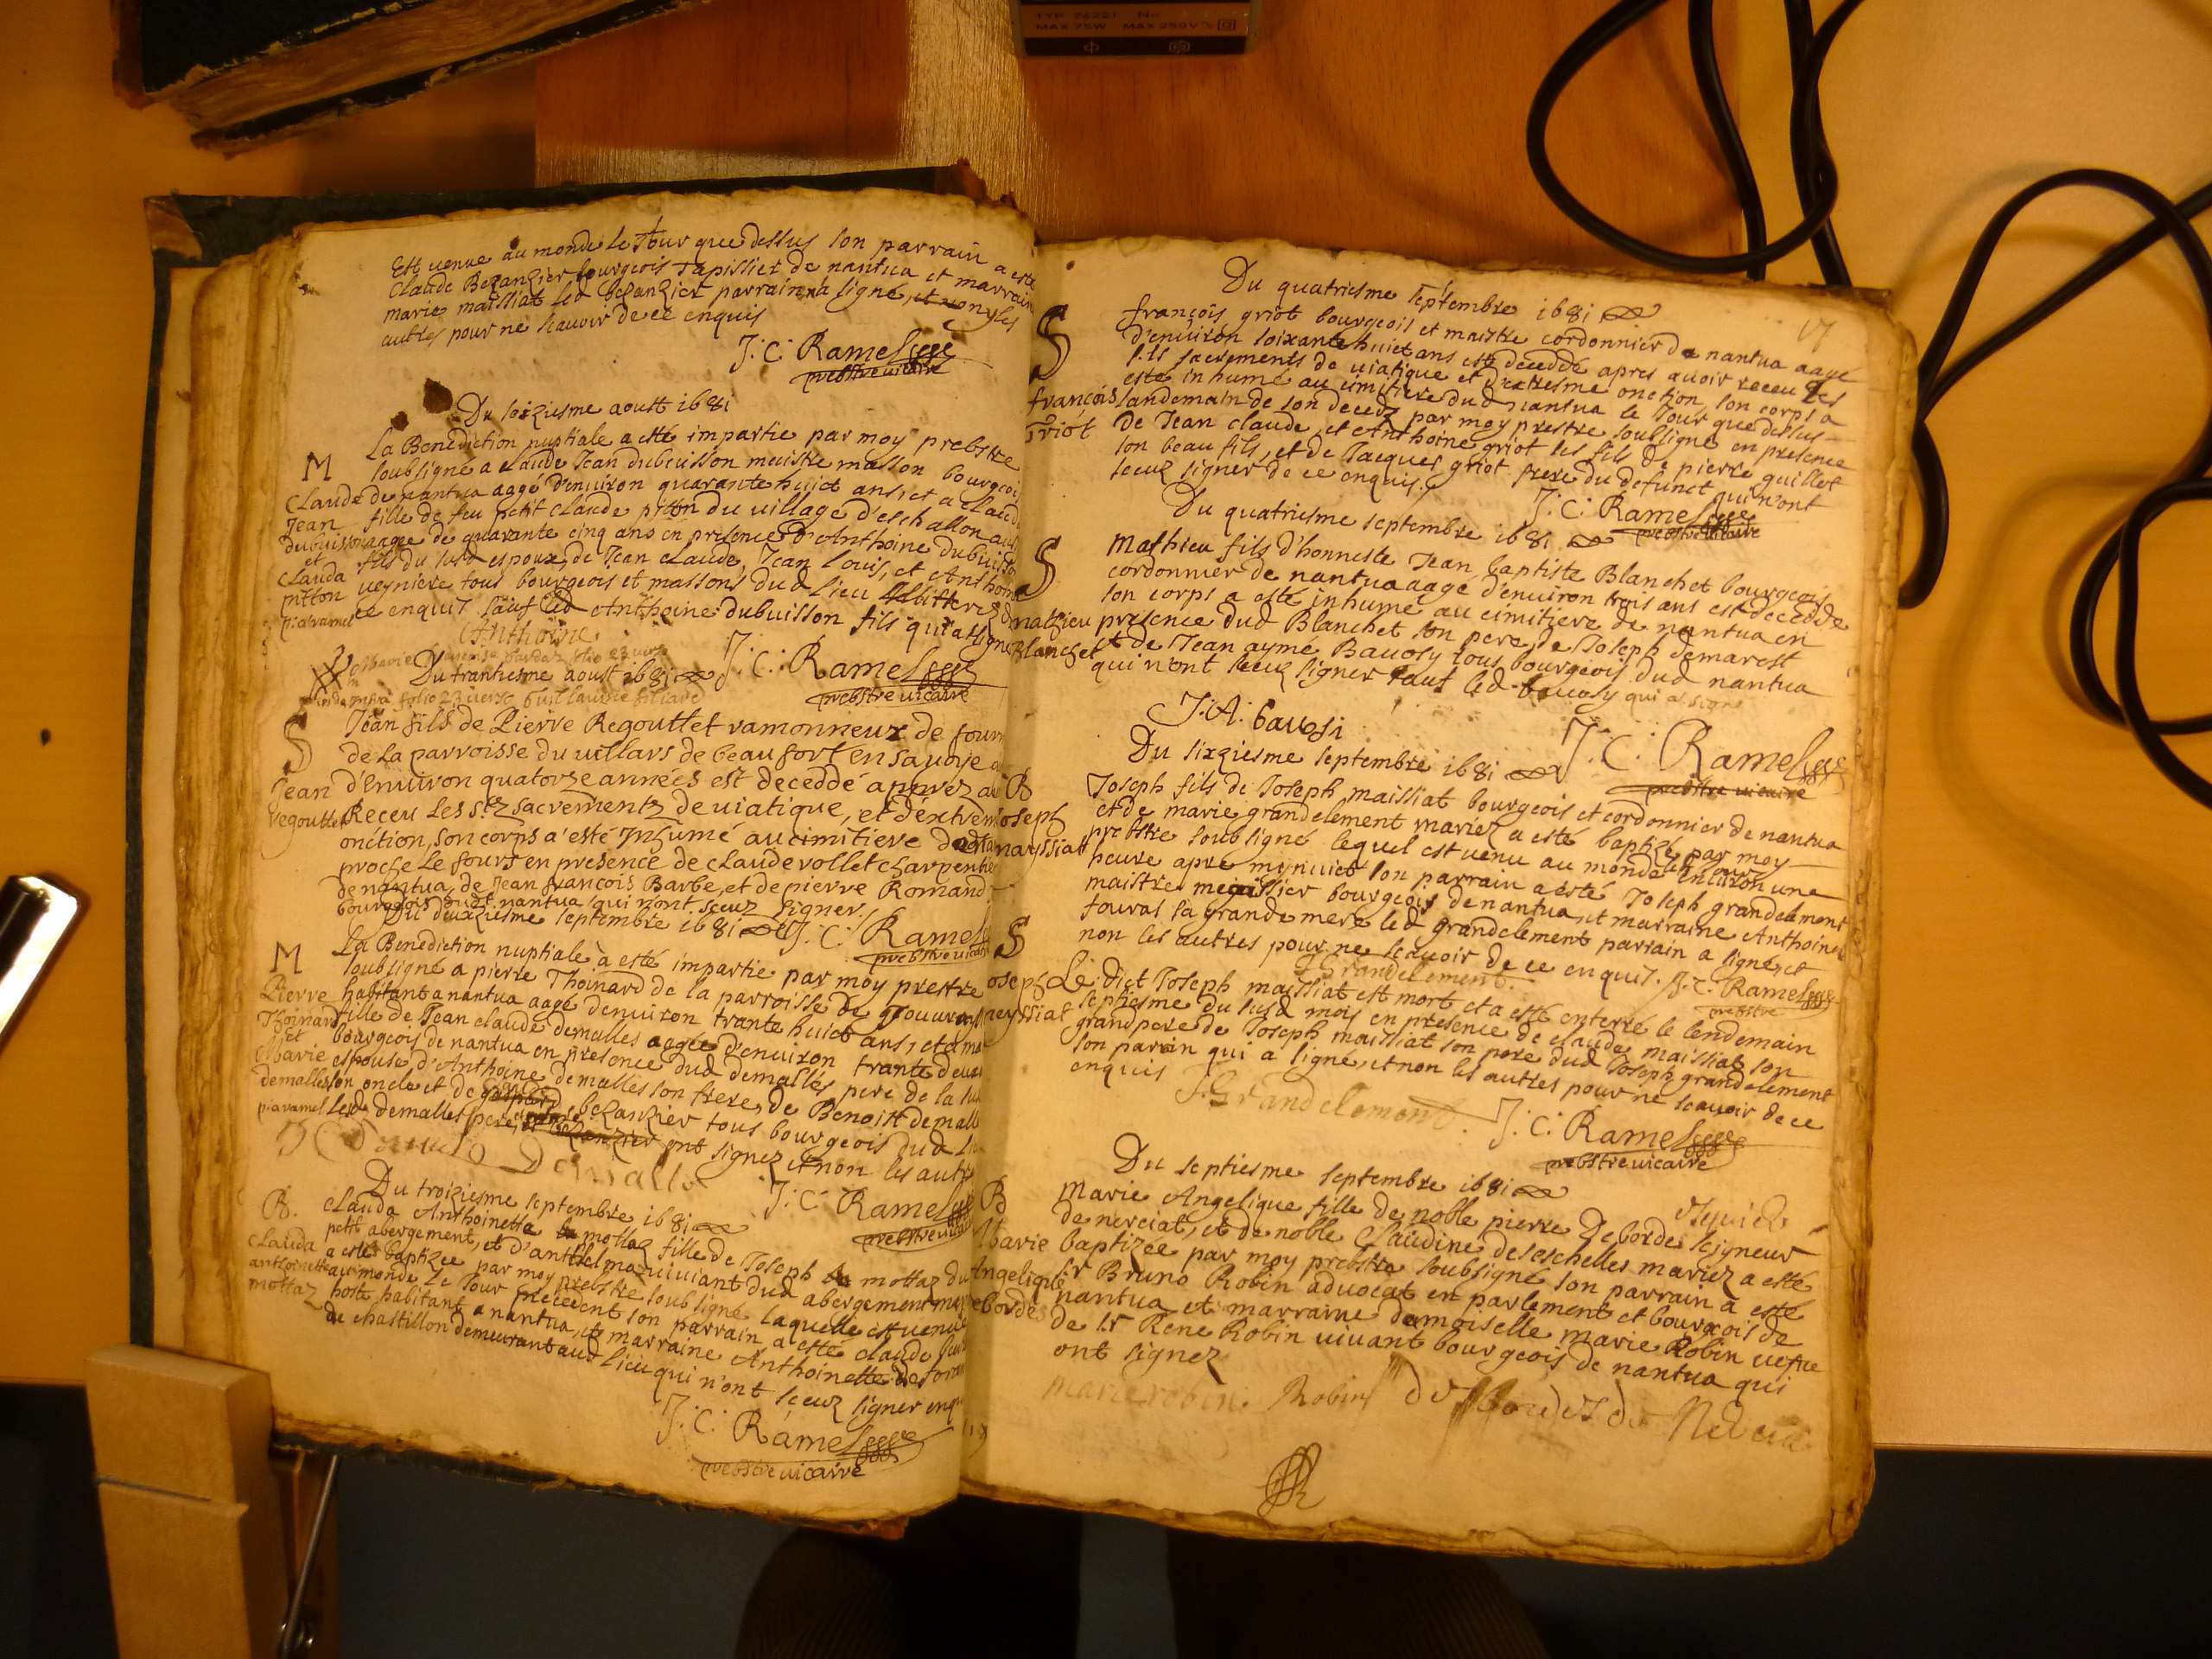 TYP 24221 No
MAX 75W MAX 250V
Est venue au monde le Jour que dessus son parrain a esté
Claude Bezanzier bourgeois Tapissier de nantua et marraine
marie maissiat led Bezanzier parrain a signé, et non les
autres pour ne scauoir de ce enquis
J: C: Ramel
prebstre uicaire
Du soiziesme aoust 1681
La Benediction nuptiale a esté impartie par moy prebstre
M
soubsigné a Claude Jean dubuisson maistre masson bourgeois
de nantua aagé d'enuiron quarante huict ans, et a Clauda
fille de feu petit Claude pitton du uillage d'eschallon aussi
aagee de quarante cinq ans en presence d'Anthoine dubuisson
fils du susd espoux, de Jean Claude, Jean Louis, et Anthoine
ueyniere tous bourgeois et massons dud lieu
ce enquis sauf led Anthoine dubuisson fils qui a signé
Claude
Jean
dubuisson
et
Clauda
pitton
Anthoine
J: C: Ramel
prebstre uicaire
Du trantiesme aoust 1681
S
Jean
regouttet
Jean fils de Pierre Regouttet ramonneur de
de la parroisse du uillars de beaufort en Sauoye
d'Enuiron quatorze années est deceddé apprez
Receu Les Sts sacrementz de uiatique, et d'extreme
onction, son corps a esté Inhumé au cimitiere
proche Le fourt en presence de Claude vollet charpentier
de nantua, de Jean françois Barbe, et de pierre Romand
bourgeois dudt nantua qui n'ont sceuz signer
J: C: Ramel
prebstre uicaire
Du deuxziesme septembre 1681
M
Pierre
Thoinard
et
Marie
demalles
La Benediction nuptiale a esté impartie par moy prestre
soubsigné a pierre Thoinard de la parroisse de
habitant a nantua aagé denuiron trante huict ans, et a
fille de Jean claude demalles aagée d'enuiron trante deux
bourgeois de nantua en presence dud demalles pere de la
espouse d'Anthoine demalles son frere, de Benoist demalles
son oncle et de bezanzier tous bourgeois dud
Lesd demalles pere, ont signez et non les autres
Demalles
J: C: Ramel
prebstre uicaire
Du troiziesme septembre 1681
B.
Clauda
anthoinette
mottaz
Clauda Anthoinette mottaz fille de Joseph mottaz du
petit abergement, et d'anthelma uiuiant dud abergement
a esté baptizée par moy prebstre soubsigné laquelle est venue
au monde le Jour precedent son parrain a esté claude
hoste habitant a nantua, et marraine Anthoinette
de chastillon demeurant aud lieu qui n'ont sceuz signer
J: C: Ramel
prebstre uicaire
17
Du quatriesme septembre 1681
S
françois
Griot
françois griot bourgeois et maistre cordonnier de nantua aagé
d'enuiron soixante huict ans est deceddé apres auoir receu les
sts sacrements de uiatique et d'extresme onction, son corps a
esté inhumé au cimitiere dud nantua le Jour que dessus
landemain de son decedz par moy prestre soubsigné en presence
de Jean claude, et Anthoine griot ses fils de pierre quillet
son beau fils, et de Jacques griot frere du defunct qui n'ont
sceuz signer de ce enquis.
J: C: Ramel
prebstre uicaire
Du quatriesme septembre 1681
S
mathieu
Blanchet
Mathieu fils d'honneste Jean baptiste Blanchet bourgeois
cordonnier de nantua aagé d'enuiron trois ans est deceddé
son corps a esté inhumé au cimitiere de nantua en
presence dud Blanchet son pere, de Joseph demarest
et de Jean aymé Bauosy tous bourgeois dud nantua
qui n'ont sceuz signer sauf led bauosy qui a signé
J: A: bauosi
J: C: Ramel
prebstre uicaire
Du sixziesme septembre 1681
B
Joseph
mayssiat
Joseph fils de Joseph maissiat bourgeois et cordonnier de nantua
et de marie grandclement mariez a esté baptizé par moy
prebstre soubsigné lequel est venu au monde enuiron une
heure apre mynuict son parrain a esté Joseph grandclement
maistre megissier bourgeois de nantua, et marraine Anthoine
fouras sa grande mere led grandclement parrain a signé, et
non les autres pour ne scauoir de ce enquis.
J Grandclement.
J: C: Ramel
prebstre
S
Joseph
meyssiat
Le dict Joseph maissiat est mort et a esté enterré le lendemain
septiesme du susd mois en presence de claude maissiat son
grand pere de Joseph maissiat son pere dud Joseph grandclement
son parain qui a signé, et non les autres pour ne scauoir de ce
enquis
J. Grandclement.
J: C: Ramel
prebstre uicaire
Du septiesme septembre 1681
B
Marie
Angelique
Marie Angelique fille de noble pierre Deborde seigneur
de nerciat, et de noble Claudine deseschelles mariez a esté
baptizée par moy prebstre soubsigné son parrain a esté
sr Bruno Robin aduocat en parlement et bourgeois de
nantua et marraine damoiselle marie Robin uefue
de sr Rene Robin uiuant bourgeois de nantua qui
ont signez
marie robin. Robin